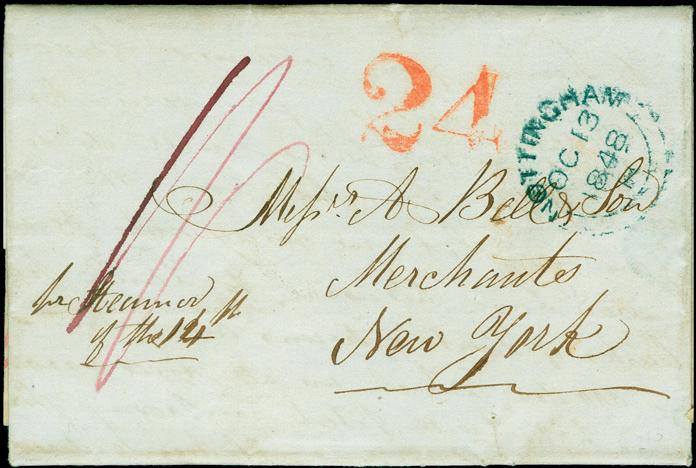 24
NOTTINGHAM
OC 13
1848
Messrs. A Bell & Son
Merchants
New York
pr Steamer
of the 14th